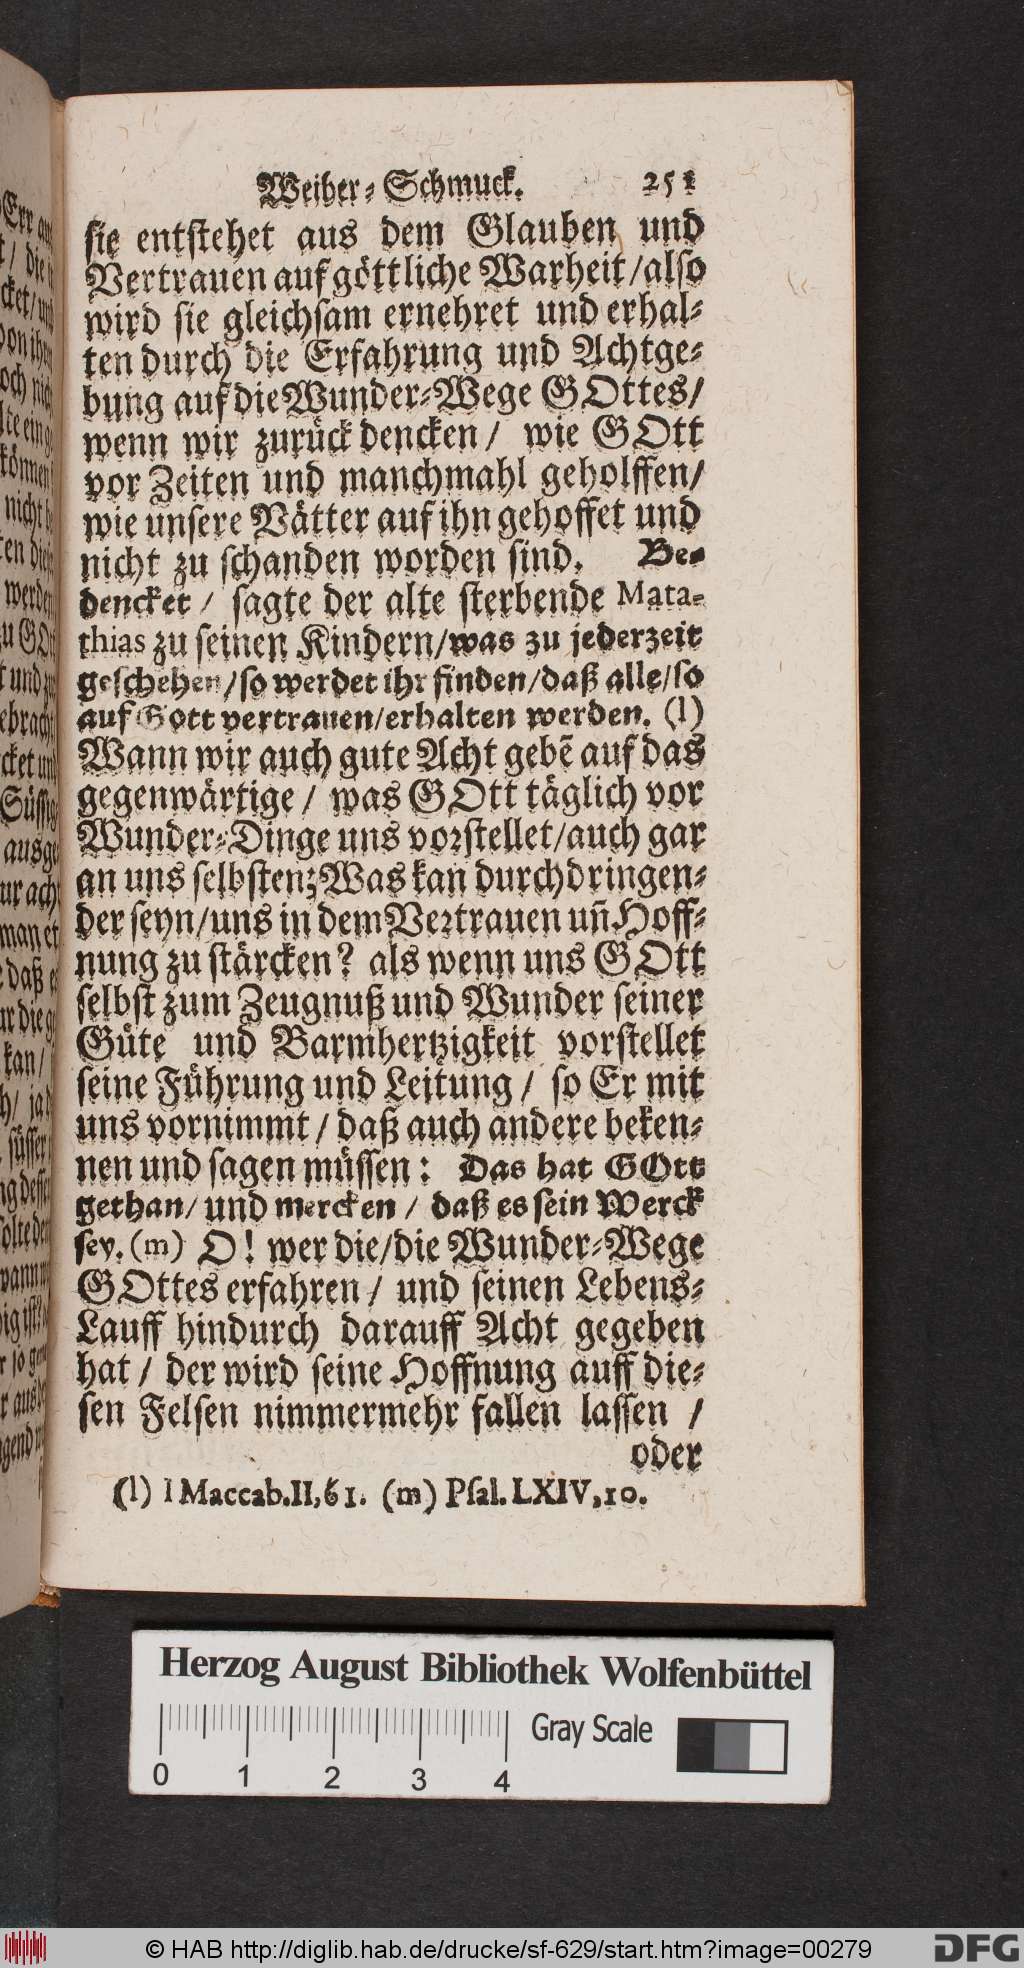 Weiber-Schmuck. 251
sie entstehet aus dem Glauben und
Vertrauen auf göttliche Warheit/also
wird sie gleichsam ernehret und erhal-
ten durch die Erfahrung und Achtge-
bung auf die Wunder-Wege GOttes/
wenn wir zurück dencken/ wie GOtt
vor Zeiten und manchmahl geholffen/
wie unsere Vätter auf ihn gehoffet und
nicht zu schanden worden sind. Be-
dencket/ sagte der alte sterbende Mata-
thias zu seinen Kindern/was zu jederzeit
geschehen/so werdet ihr finden/daß alle/so
auf Gott vertrauen/erhalten werden. (l)
Wann wir auch gute Acht gebẽ auf das
gegenwärtige/ was GOtt täglich vor
Wunder-Dinge uns vorstellet/auch gar
an uns selbsten; Was kan durchdringen-
der seyn/uns in dem Vertrauen uñ Hoff-
nung zu stärcken? als wenn uns GOtt
selbst zum Zeugnuß und Wunder seiner
Güte und Barmhertzigkeit vorstellet
seine Führung und Leitung/ so Er mit
uns vornimmt/ daß auch andere beken-
nen und sagen müssen: Das hat GOtt
gethan/ und mercken/ daß es sein Werck
sey. (m) O! wer die/die Wunder-Wege
GOttes erfahren/ und seinen Lebens-
Lauff hindurch darauff Acht gegeben
hat/ der wird seine Hoffnung auff die-
sen Felsen nimmermehr fallen lassen /
oder
(l) 1 Maccab.II,61. (m) Psal. LXIV,10.
Herzog August Bibliothek Wolfenbüttel
Gray Scale
0 1 2 3 4
© HAB http://diglib.hab.de/drucke/sf-629/start.htm?image=00279
DFG